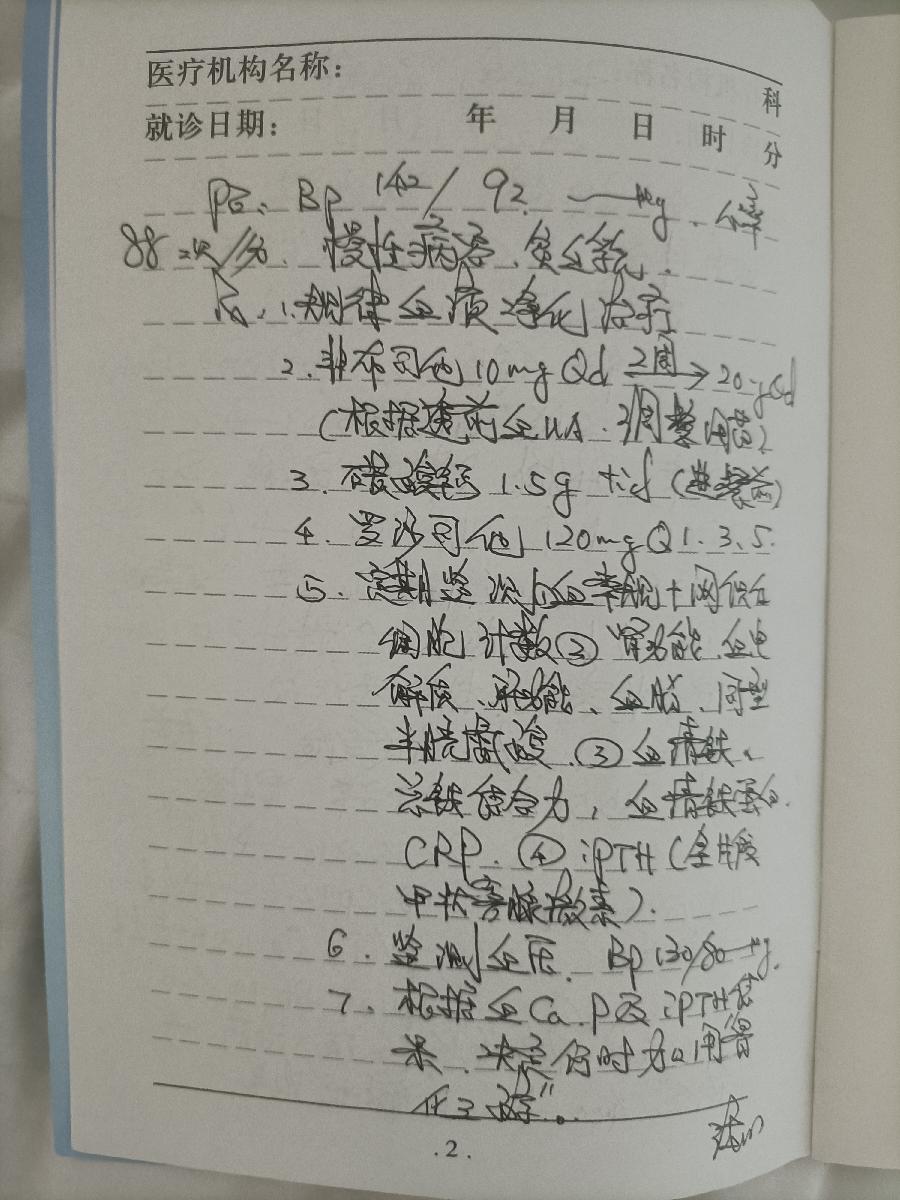 医疗机构名称：
科
就诊日期： 年 月 日 时 分
PE：Bp 142/92 mmHg．
88次/分．慢性病容、贫血貌．
R，1.规律血液净化治疗
2.非布司他10mg Qd 2周→20mg Qd
（根据透前血UA．调整用药）
3．碳酸钙 1.5g tid（
4．罗沙司他 120mg Q1.3.5.
5．定期监测 血常规+网织红
细胞计数②肾功能、血电
解质、肝功能、血脂、同型
半胱氨酸．③血清铁、
总铁结合力，血清铁蛋白．
CRP．④iPTH（全片段
甲状旁腺激素）．
6．监测血压．Bp 130/80mmHg．
7．根据血Ca、P及iPTH结
果、决定何时加用"骨
化三醇"。
.2.